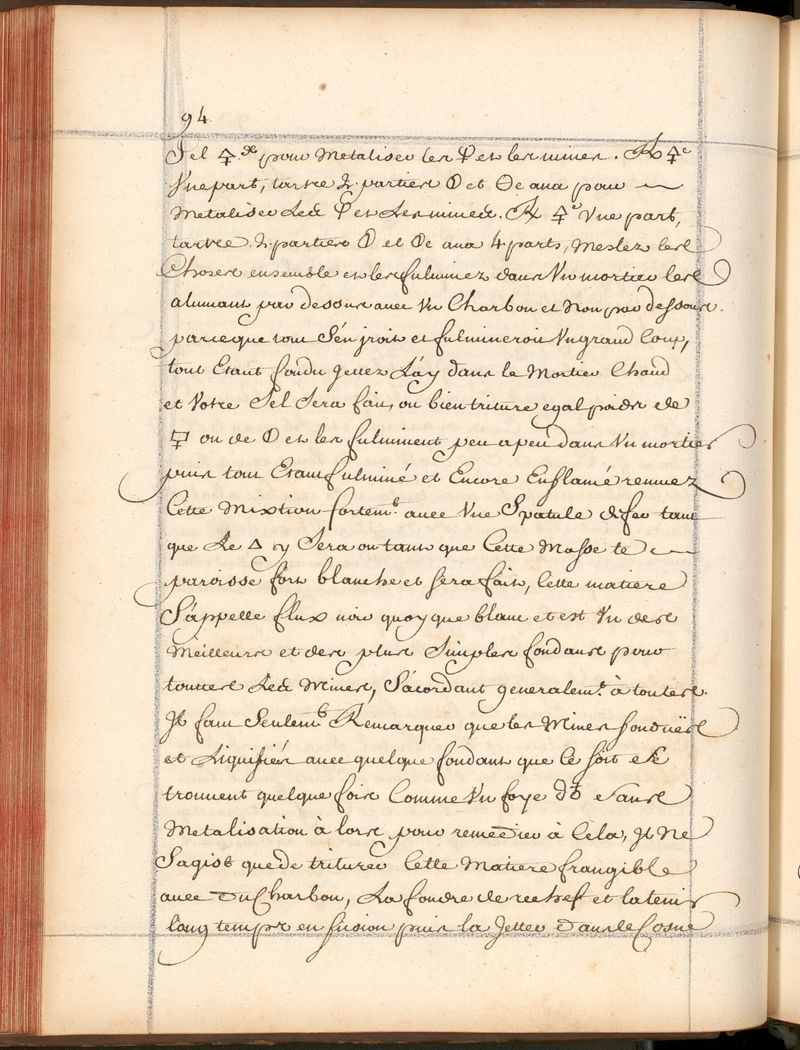 94
Sel 🜍 de pour Metaliser les et les mines. ℞ 🜍e
Vne part, tartre 2. parties et ana pour
Metaliser Les et Les mines. ℞ 🜍e Vne part,
tartre 2. parties et ana 4 parts, meslez les
Choses ensemble et les fulminez dans Vn mortier les
alumant par dessus auec Vn Charbon et Non par dessous.
parceque tout S'en jroit et fulmineroit Vn grand Coup,
tout Etant fondu gettez L'ay dans le Mortier Chaud
et Votre Sel Sera fait, ou bien triture egal poids de
🜿 ou de et les fulminent peu a peu dans Vn mortier
puis tout Etant fulminé et Encore Enflamé remuez
Cette Mixtion fortemt. auec Vne Spatule de fer tant
que Le 🜂 y Sera ou tant que Cette Masse te
paroisse fort blanche et sera fait, Cette matiere
S'appelle flux noir quoy que blanc et est Vn des
Meilleurs et des plus Simples fondans pour
toutes Les Mines, S'acordant generalemt. à toutes.
Jl faut Seulemt. Remarquer que les Mines fonduës
et auec quelque fondant que Ce soit Se
trouuent quelque fois Comme Vn foye d'♁ et sans
Metalisation à lors pour remedier à Cela, Jl Ne
Sagist que de triturer Cette Matiere frangible
auec du Charbon, La fondre de rechef et la tenir
long temps en fusion puis la Jetter dans le Cosne